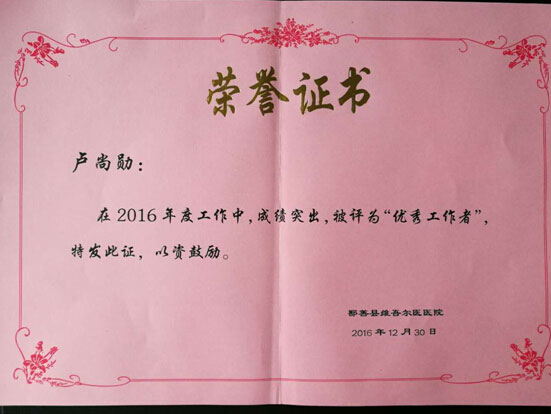 荣誉证书
卢尚勋：
在2016年度工作中，成绩突出，被评为“优秀工作者”，
特发此证，以资鼓励。
鄯善县维吾尔医医院
2016年12月30日